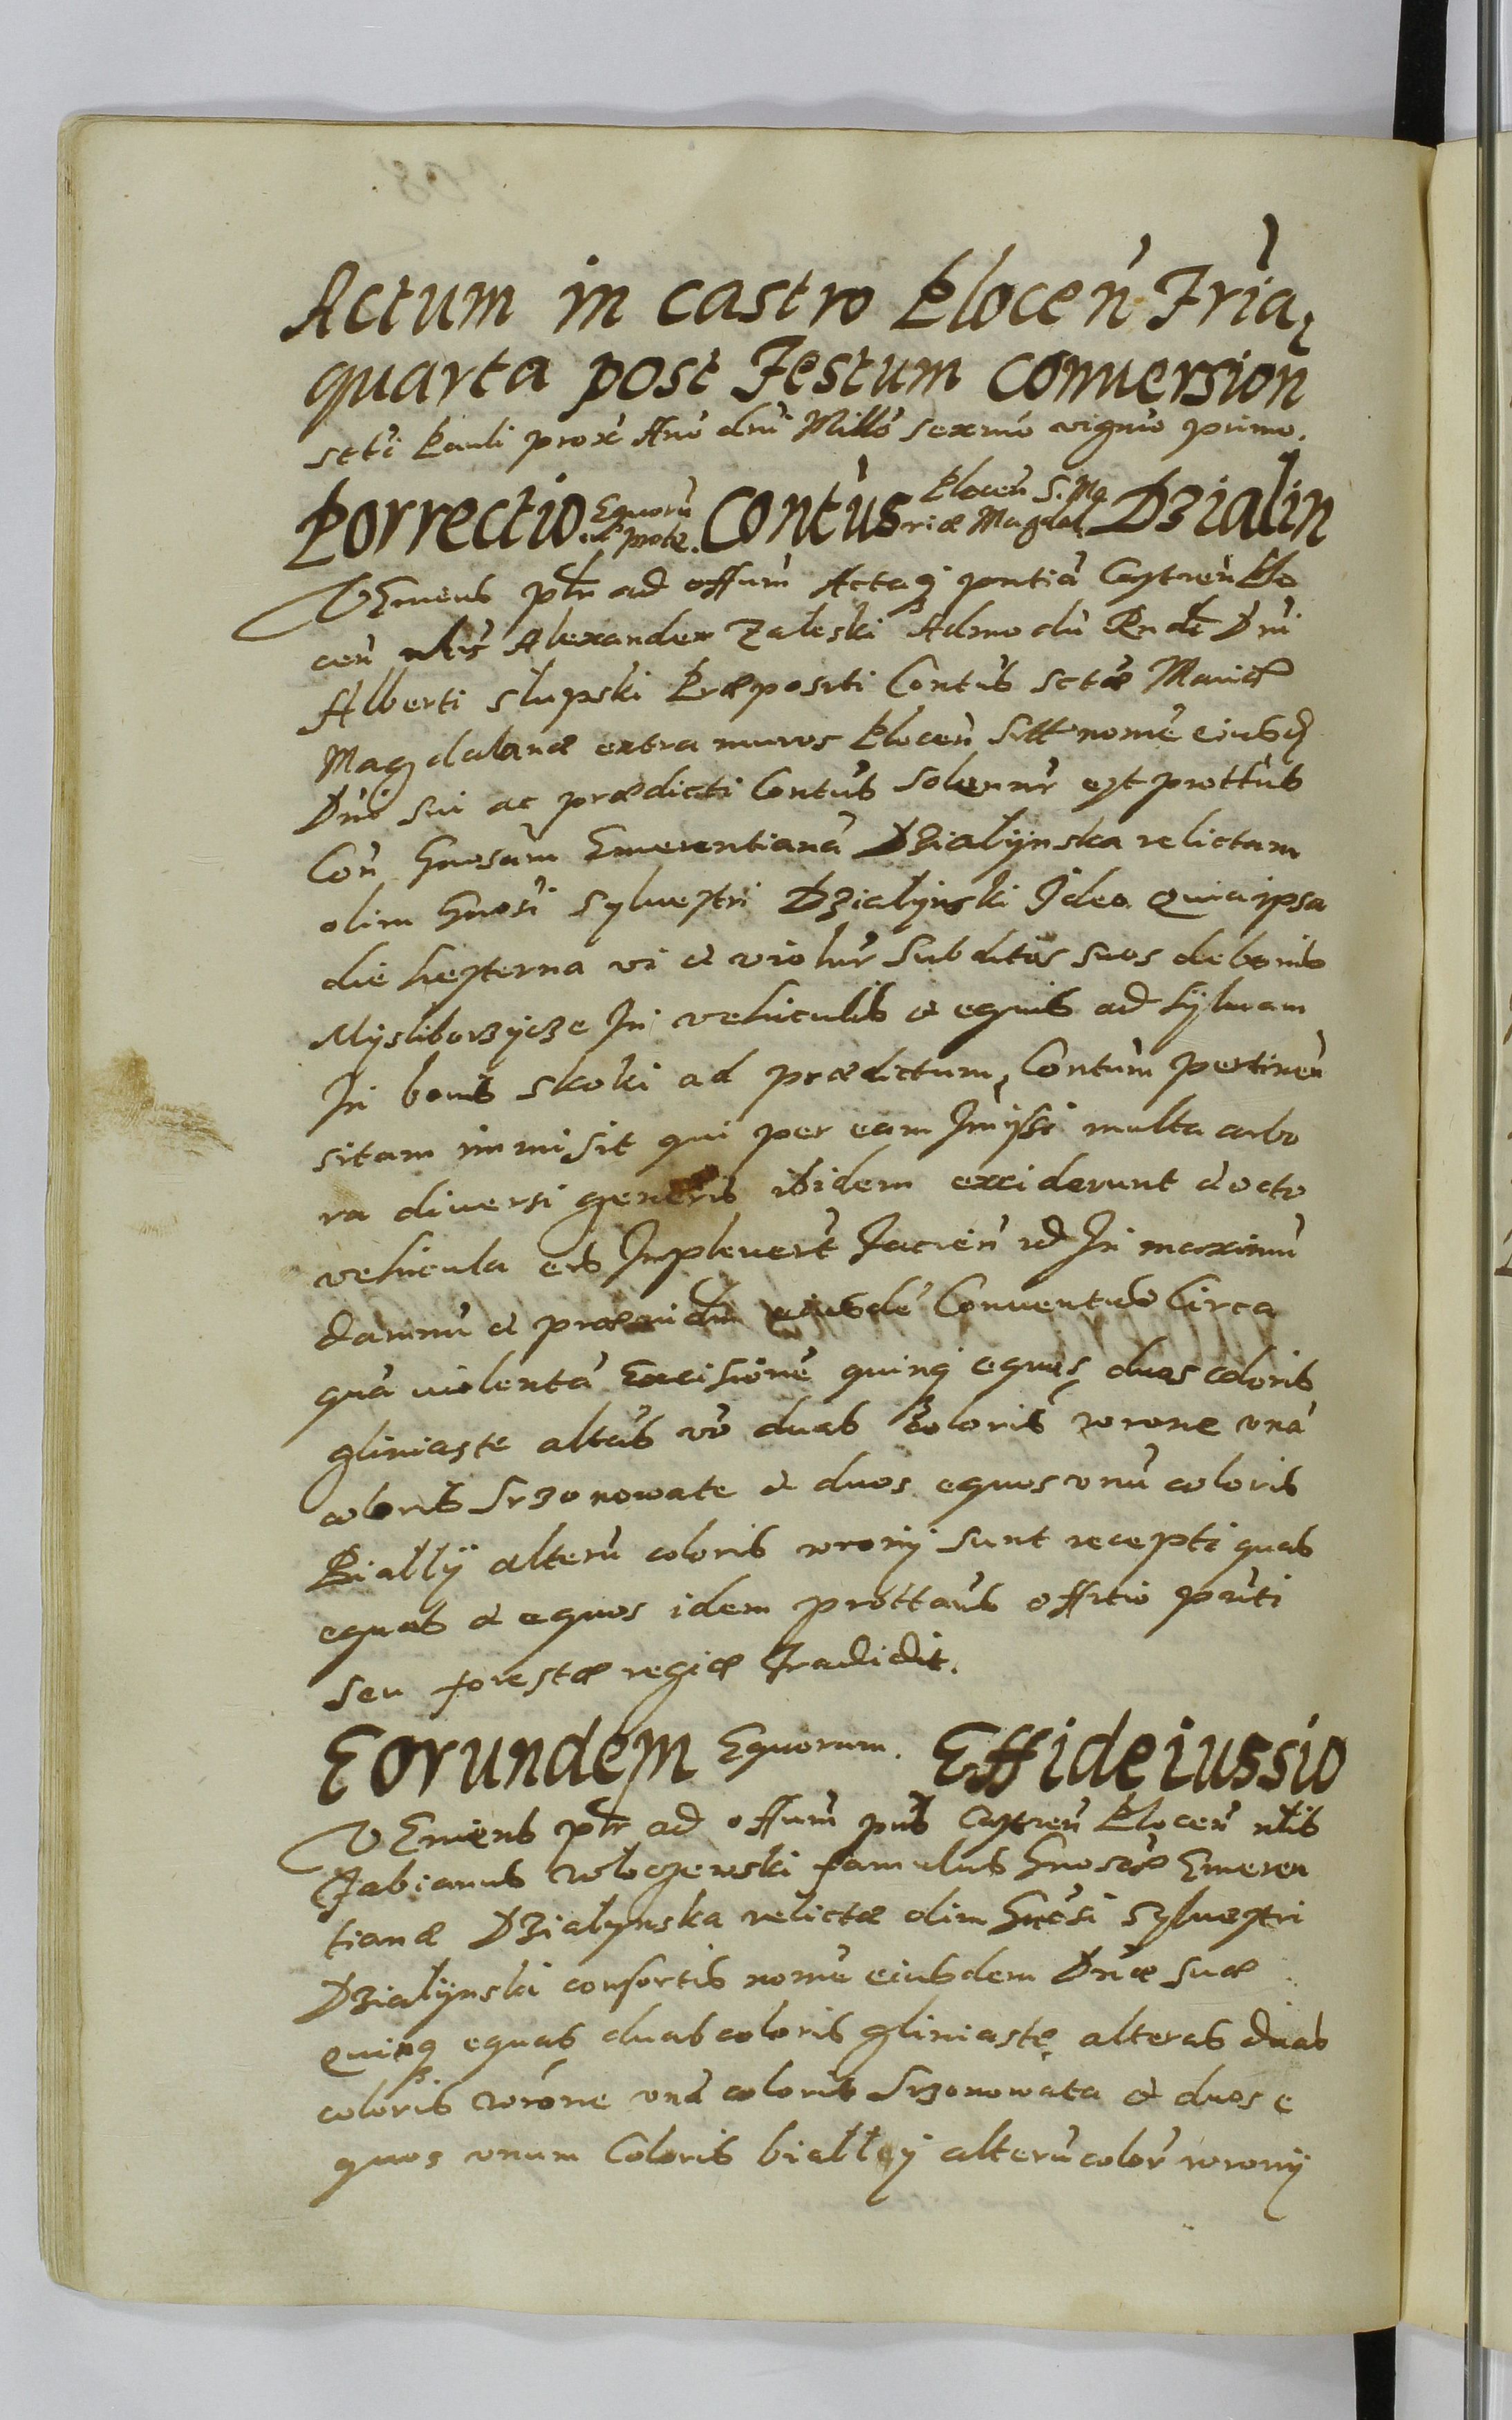 Actum in castro Plocen̄ Fr̄ia
quarta post Festum conuersion̄
scti Pauli prox̄ An̄o dn̄i Mill̄o sexm̄o vigm̄o primo.
Porrectio Equorū et Prote. Contūs Plocen̄ S. Ma riæ Magdal. Dzialin
VEniens pl̄r ad offūm Actaq̨ pn̄tiā Castren̄ Plo
cen̄ nl̄is Alexander Zaleski Admodū Rn̄di Dn̄i
Alberti Słupski Præpositi Contūs Sctæ Mariæ
Magdalenæ extra muros Plocen̄ Sitt̄ nom̄e eiusd̄
Dn̄i sui ac prædicti Contūs solenn̄r est prottūs
Con̄ Gn̄osām Emerentianā Dzialÿnska relictam
olim Gn̄osi Syluestri Działÿnski Ideo Quia ipsa
die hesterna vi et violn̄r subditos suos de bonis
Mÿsliborzÿcze In vehiculis et equis ad sÿluam
In bonis Skoki ad prædictum Contūm pertinen̄
sitam immisit qui per eam Im̄issi multa arbo
ra diuersi generis ibidem exciderunt et octo
vehicula eis Impleuer̄t Facien̄ id In maximū
damnū et præiudm̄ eiusdē Conuentus Circa
quā violentā Excisionē quinq̨ equas duas coloris
gliniaste altās vō duas coloris wrone vnā
coloris Srzonowate et duos equos vnū coloris
Białłÿ alterū coloris wronÿ sunt recepti quas
equas et equos idem prottan̄s officio pn̄ti
seu forestæ regiæ Tradidit.
Eorundem Equorum. Effideiussio
VEniens pl̄r ad offūm pn̄s Castren̄ Plocen̄ nl̄is
Fabianus famulus Gn̄osæ Emeren
tianæ Działynska relictæ olim Gn̄osi Syluestri
Działÿnski consortis nom̄e eiusdem Dn̄æ suæ
quinq̨ equas duas coloris gliniaste alteras duas
coloris wrone vnā coloris Srzonowata et duos e
quos vnum Coloris białłeÿ alterū color̄ wronÿ